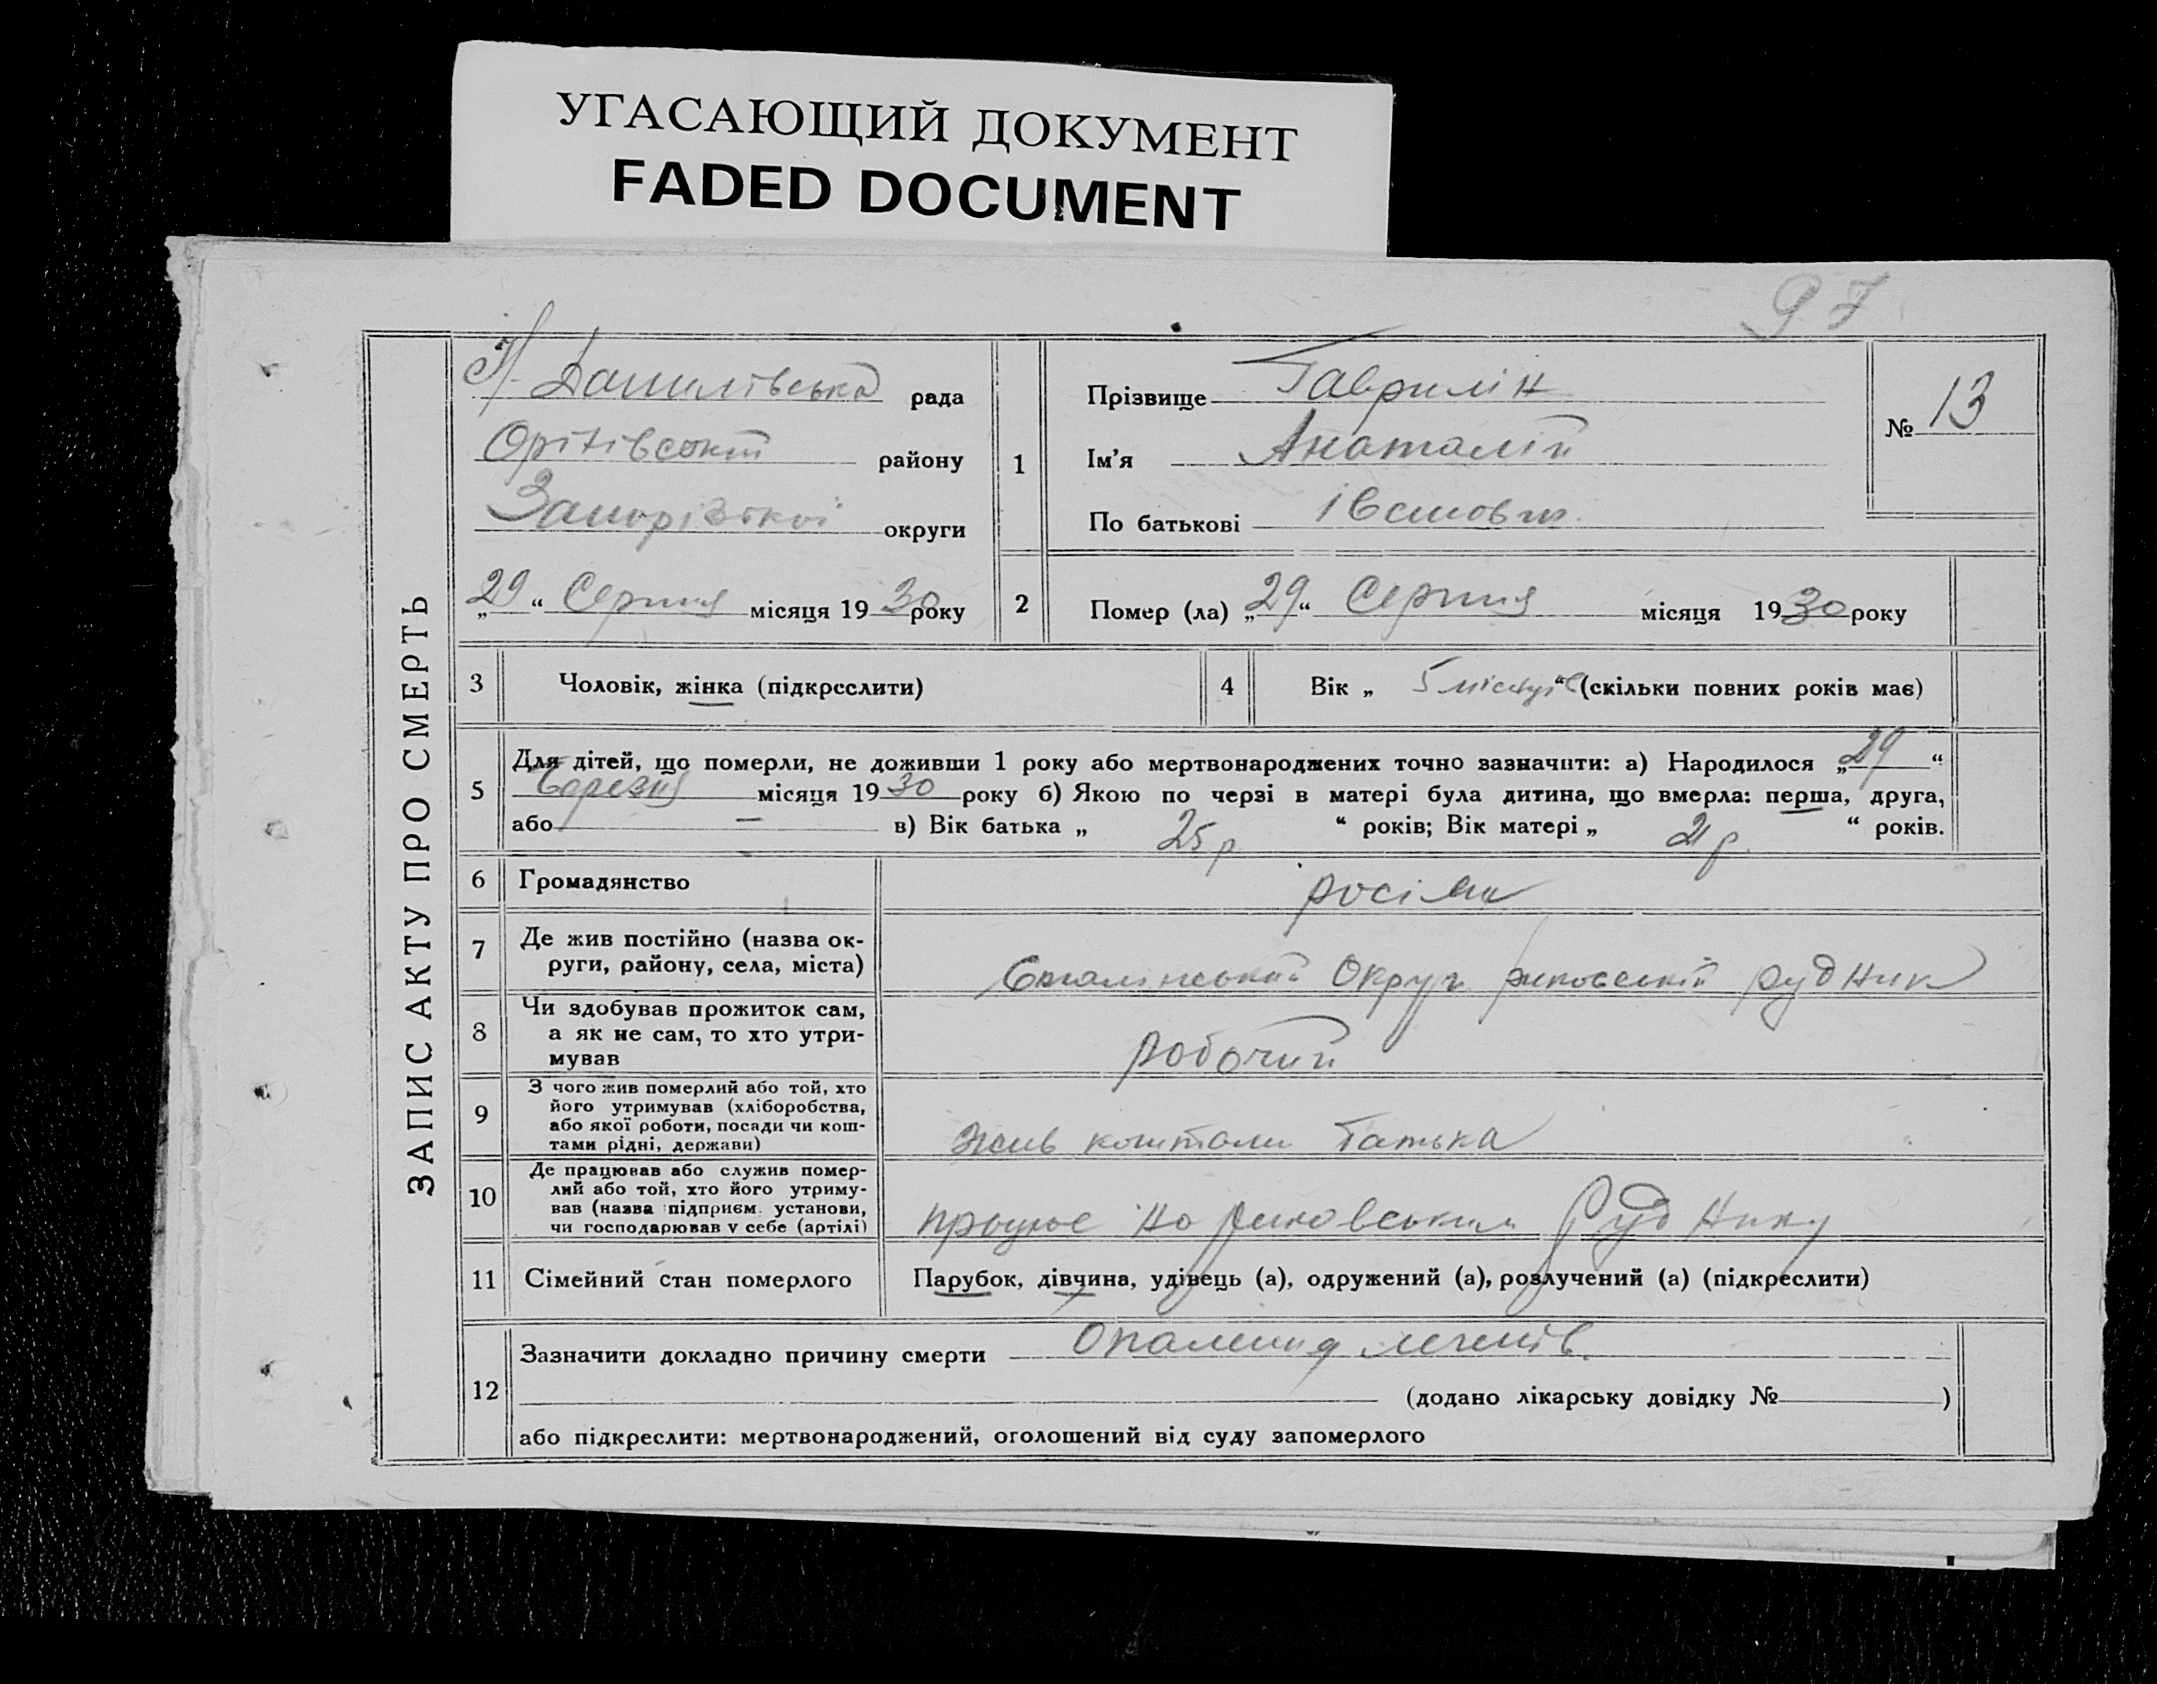 УГАСАЮЩИЙ ДОКУМЕНТ
FADED DOCUMENT
97
ЗАПИС АКТУ ПРО СМЕРТЬ
Данилівська рада
Оріхівський району
Запорізької округи
„29“ Серпня місяця 1930 року
1
Прізвище Гаврилін
Ім’я Анатолій
По батькові Іванович
№ 13
2 Помер (ла) „29“ Серпня місяця 1930 року
3 Чоловік, жінка (підкреслити)
4 Вік „5 місяців“ (скільки повних років має)
5 Для дітей, що померли, не доживши 1 року або мертвонароджених точно зазначити: а) Народилося „29“
березня місяця 1930 року б) Якою по черзі в матері була дитина, що вмерла: перша, друга,
або — в) Вік батька „25 р.“ років; Вік матері „21 р.“ років.
6 Громадянство
7 Де жив постійно (назва ок-
руги, району, села, міста) Сталінський Округ риковський рудник
8 Чи здобував прожиток сам,
а як не сам, то хто утри-
мував робочий
9 З чого жив померлий або той, хто
його утримував (хліборобства,
або якої роботи, посади чи кош-
тами рідні, держави) жив коштами батька
10 Де працював або служив помер-
лий або той, хто його утриму-
вав (назва підприєм. установи,
чи господарював у себе (артілі) працює на риковським Руднику
11 Сімейний стан померлого Парубок, дівчина, удівець (а), одружений (а), розлучений (а) (підкреслити)
12 Зазначити докладно причину смерти Опалення легенів.
(додано лікарську довідку № )
або підкреслити: мертвонароджений, оголошений від суду запомерлого